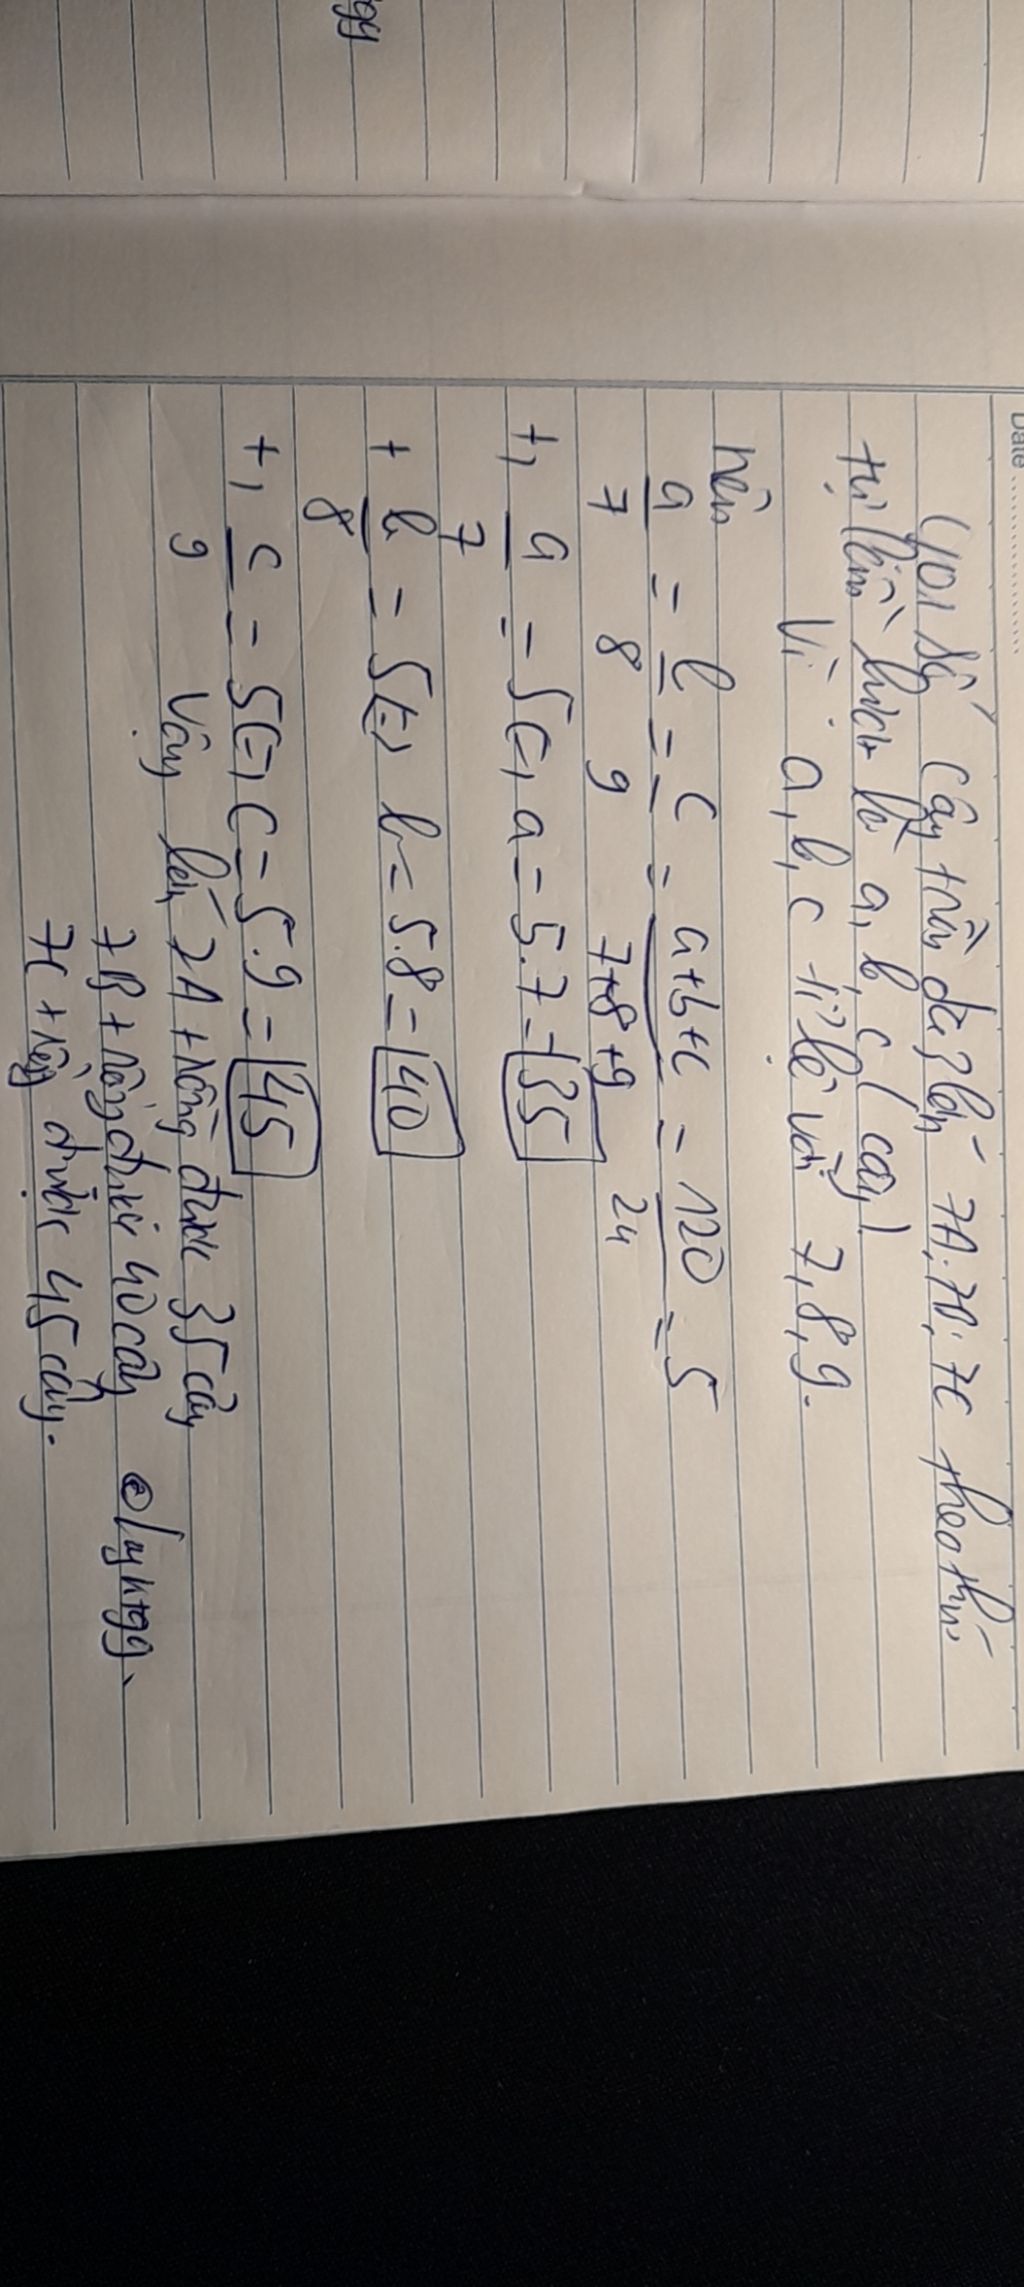 Date ............
Gọi số cây trồng của 3 lớp 7A, 7B, 7C theo thứ
tự lần lượt là a, b, c (cây)
Vì a, b, c tỉ lệ với 7, 8, 9.
nên
a/7 = b/8 = c/9 = a+b+c/7+8+9 = 120/24 = 5
+, a/7 = 5 (=) a = 5.7 = 35
+ b/8 = 5 (=) b = 5.8 = 40
+, c/9 = 5 (=) c = 5.9 = 45
Vậy lớp 7A trồng được 35 cây
7B trồng được 40 cây
7C trồng được 45 cây.